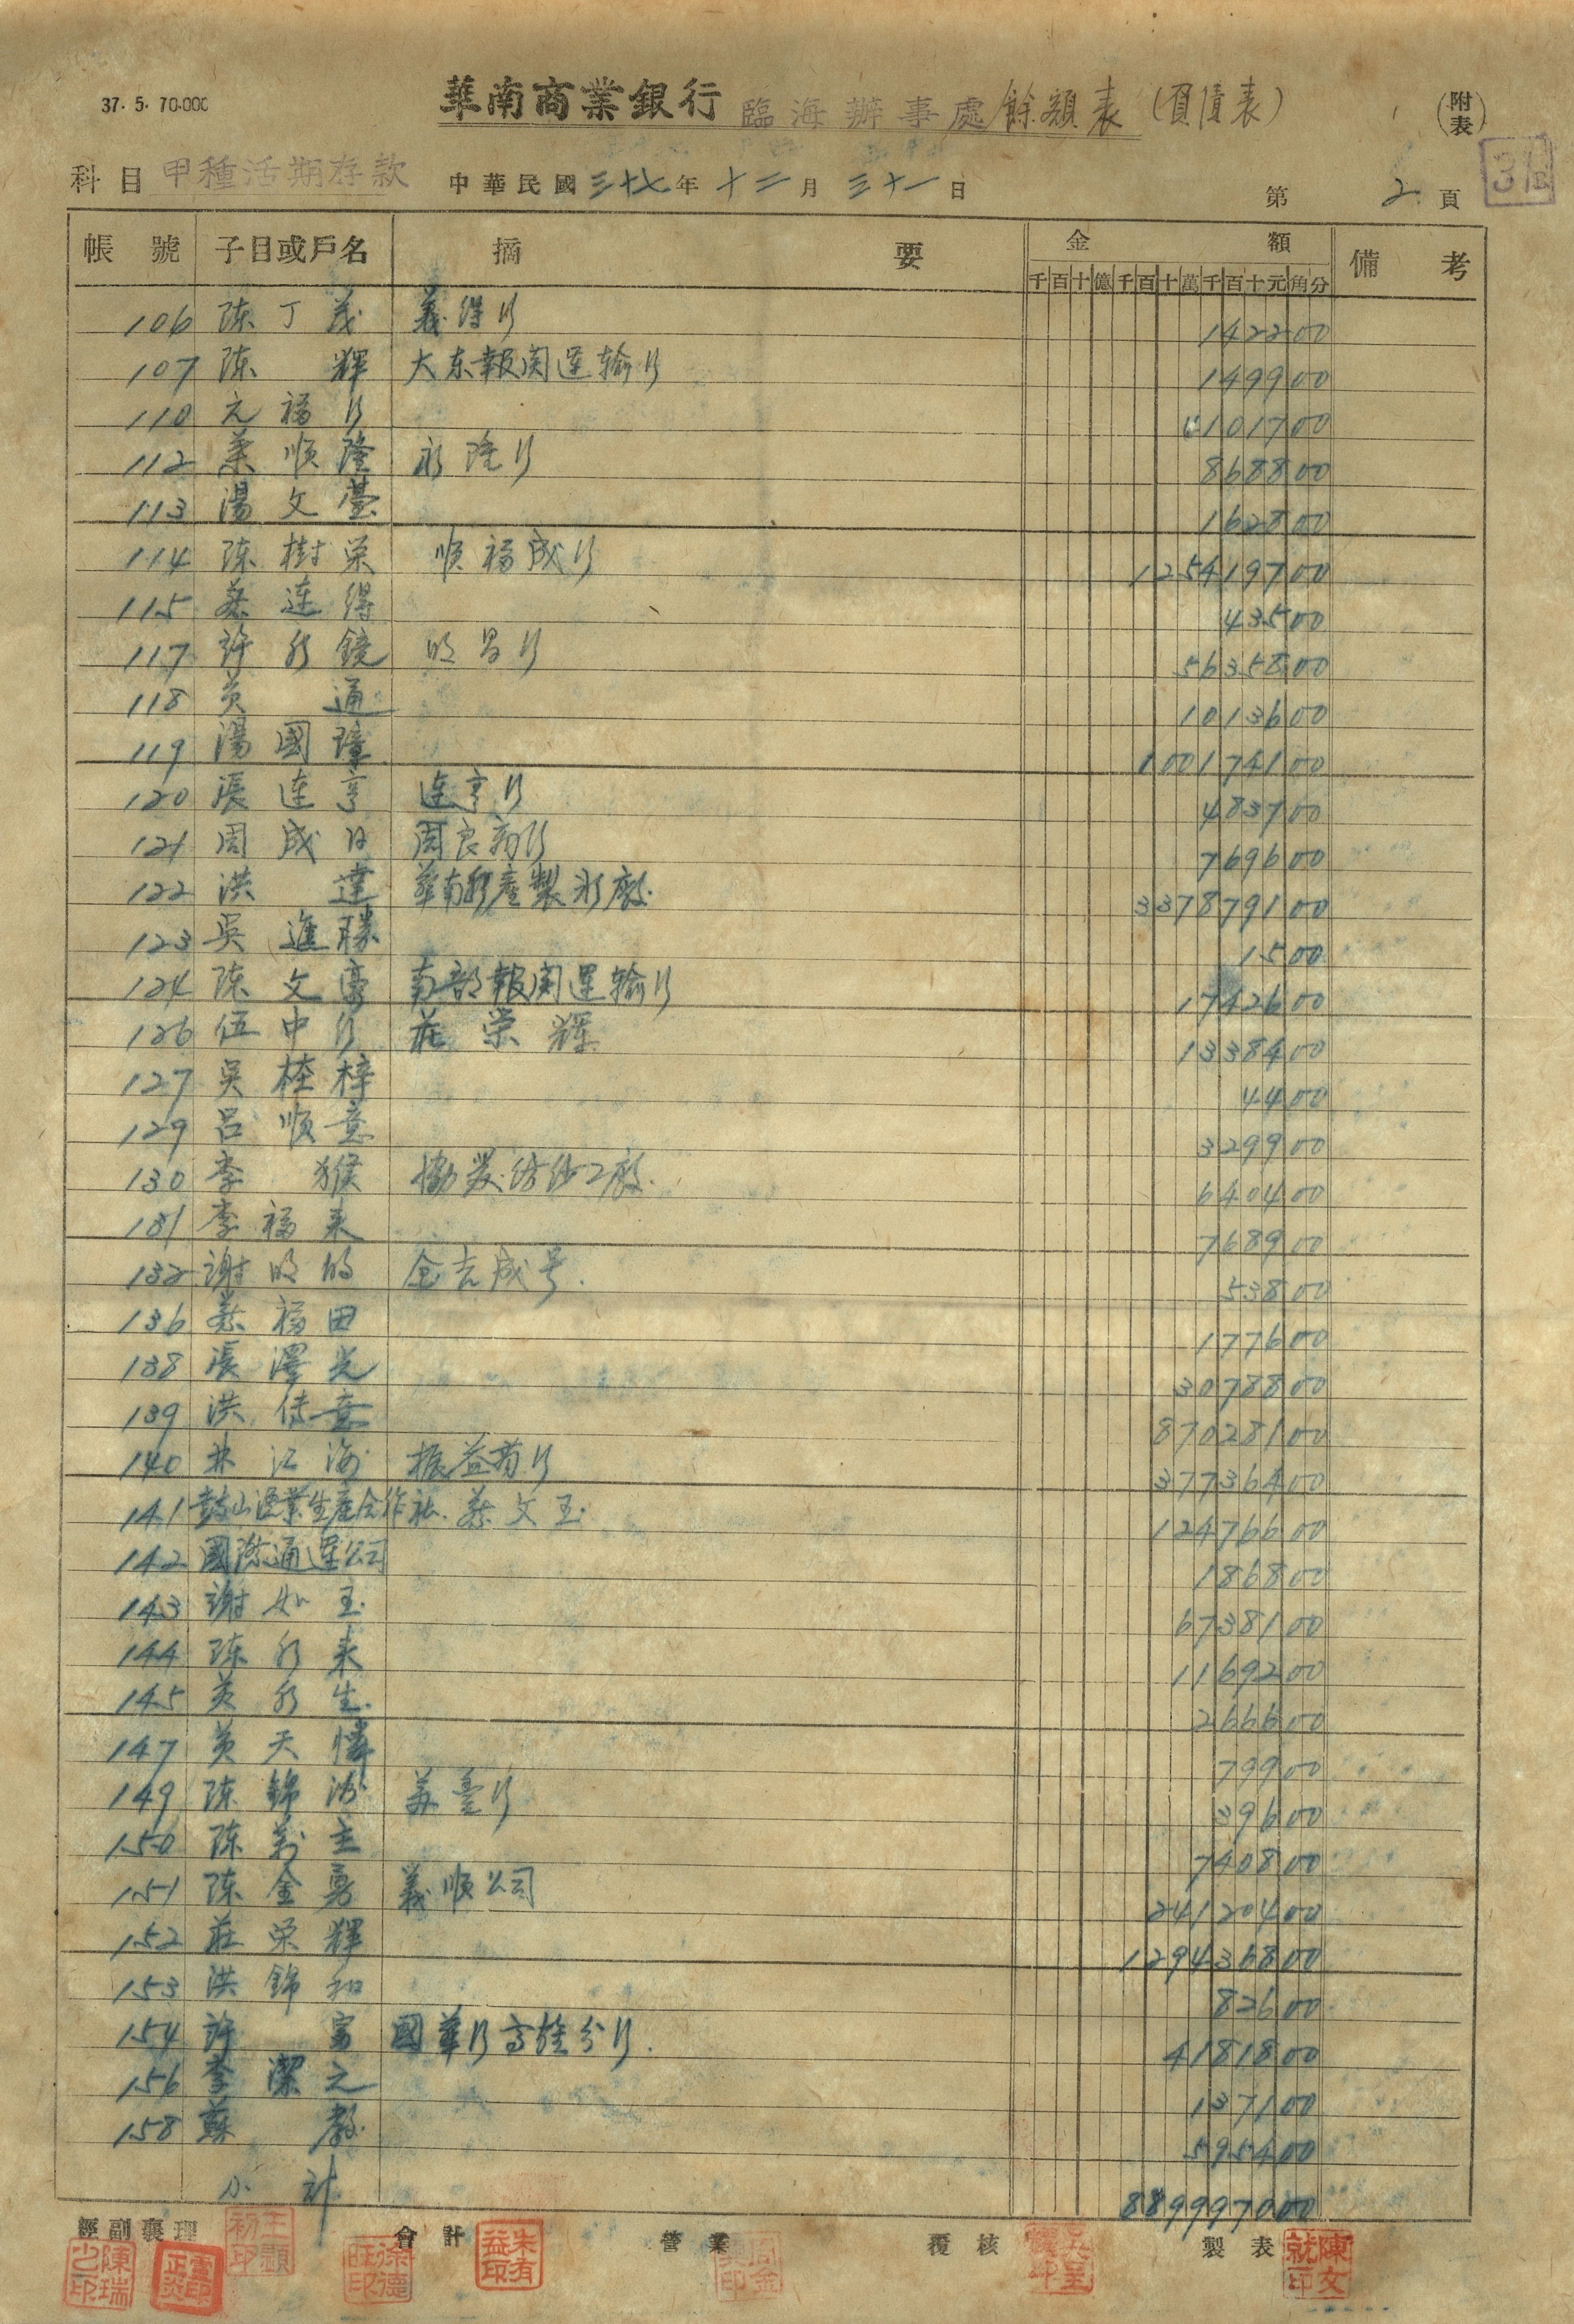 37. 5. 70.000
華南商業銀行 臨海辦事處 餘額表 (負債表)
(附表)
科目 甲種活期存款 中華民國 三十七 年 十二 月 三十一 日 第 2 頁
帳號 子目或戶名 摘要 金額 備考
千百十億千百十萬千百十元角分
106 陈丁茂 義得行 1422 00
107 陈輝 大东報関運输行 1499 00
110 元福行 1017 00
112 葉順隆 永隆行 8688 00
113 湯文 1628 00
114 陈樹荣 順福成行 1254197 00
115 蔡连得 435 00
117 許水鏡 明昌行 56358 00
118 黄通 10136 00
119 湯國璋 1001741 00
120 張连亨 连亨行 4837 00
121 周成日 周良 行 7696 00
122 洪達 華南水產製氷廠 3378791 00
123 吳進勝 15 00
124 陈文 南部報関運输行 17426 00
126 伍中行 莊荣輝 13384 00
127 吳 梓 44 00
129 呂順意 3299 00
130 李猴 協發 工廠 6404 00
131 李福来 7689 00
132 謝明 金吉成号 538 00
136 蔡福田 1776 00
138 張澤光 30788 00
139 洪 意 870281 00
140 林江海 振益 行 377364 00
141 鼓山漁業生産合作社 蔡文玉 124766 00
142 國際通運公司 1868 00
143 謝如玉 67381 00
144 陈水来 11692 00
145 黄水生 2666 00
147 黄天憐 799 00
149 陈錦 美臺行 396 00
150 陈 主 7408 00
151 陈金勇 義順公司 241204 00
152 莊荣輝 1294368 00
153 洪錦和 826 00
154 許富 國華行高雄分行 41818 00
156 李潔之 1371 00
158 蘇教 5954 00
小計 8899970 00
經副襄理 會計 營業 覆核 製表
朱有益印
陳瑞
徐德旺印
陳文就印